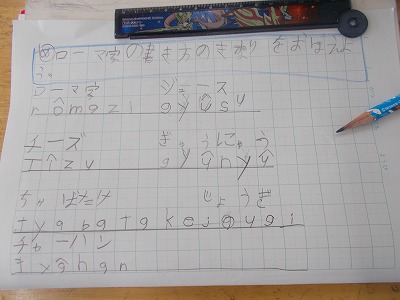 めローマ字の書き方のきまりをおぼえよう
ローマ字 ジュース
rômazi
チーズ ぎゅうにゅう
tîzu gyûnyû
ちゃばたけ じょうぎ
tyabatake
チャーハン
tyâhan